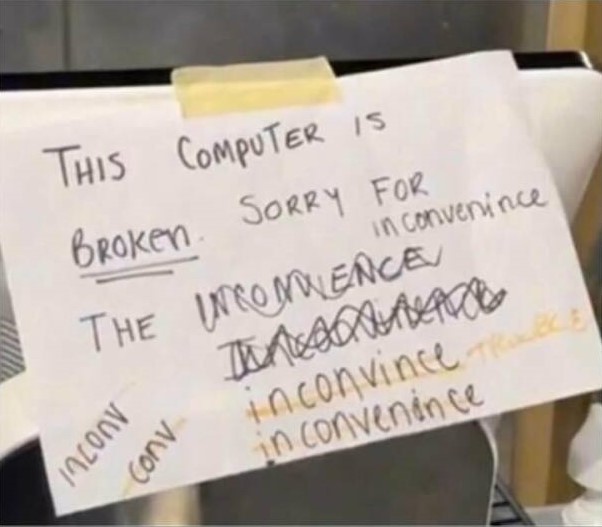 THIS COMPUTER IS
BROKEN. SORRY FOR
inconvenince
THE INCONVIENCE
inconvince TROUBLE
inconvenince
inconv
conv